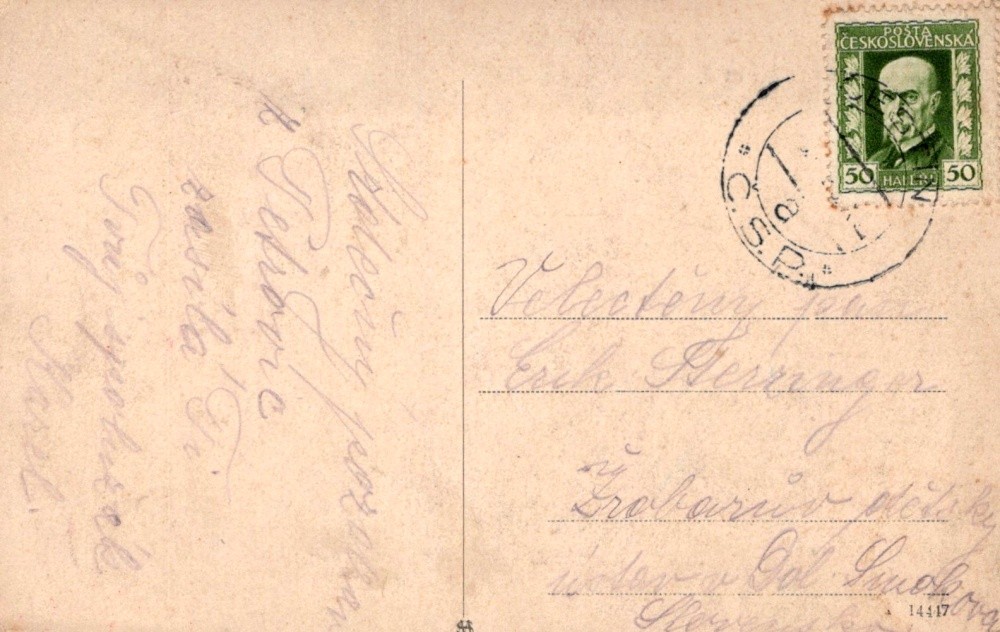 Srdečný pozdrav
z Petrovic
zasílá Ti
Tvůj
Karel.
POŠTA
ČESKOSLOVENSKÁ
50 HALÉŘŮ 50
Č.S.P.
Velectěný pan
Erik Sterzinger
dětský
ústav v Dol. Smokovci
Slovensko
14447